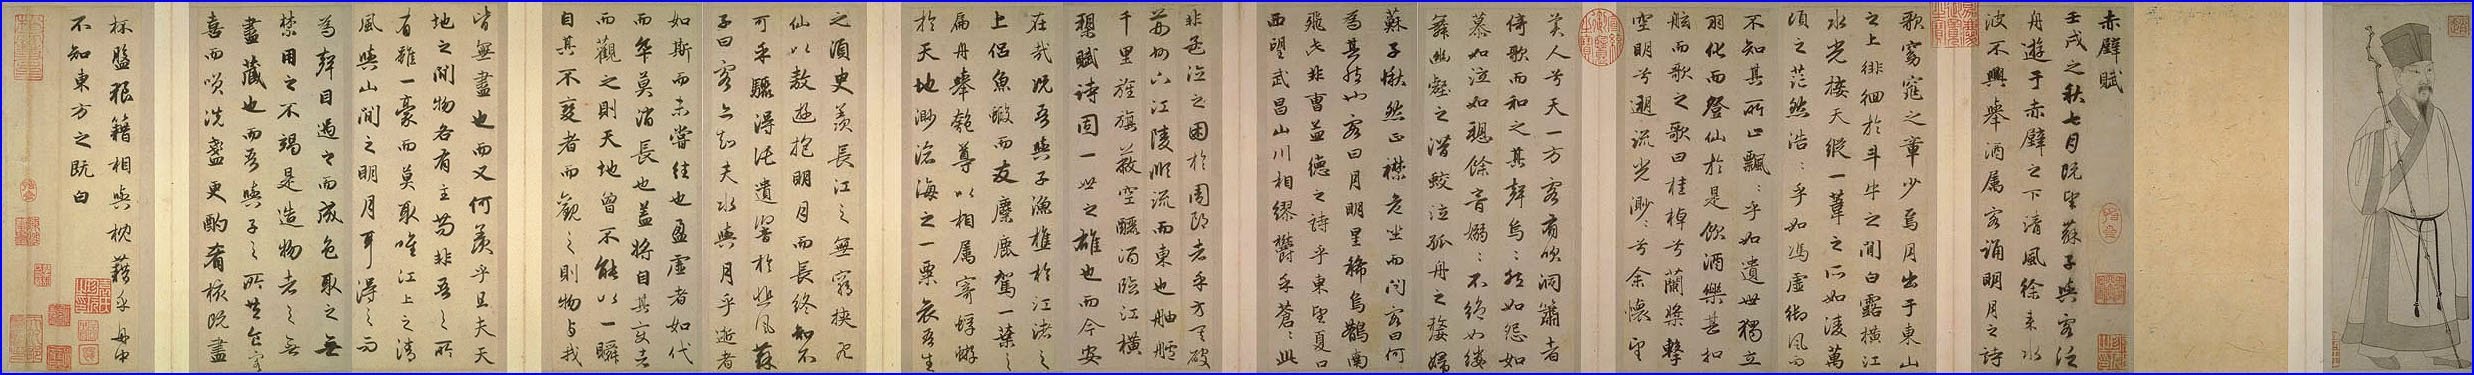 赤壁賦
壬戌之秋七月既望蘇子與客泛
舟遊于赤壁之下清風徐来水
波不興舉酒属客誦明月之詩
歌窈窕之章少焉月出于東山
之上徘徊於斗牛之間白露橫江
水光接天縱一葦之所如淩萬
頃之茫然浩〻乎如馮虛御風而
不知其所止飄〻乎如遺世獨立
羽化而登仙於是飲酒樂甚扣
舷而歌之歌曰桂棹兮蘭槳擊
空明兮遡流光渺〻兮余懷望
美人兮天一方客有吹洞簫者
倚歌而和之其聲嗚〻然如怨如
慕如泣如愬餘音嫋〻不絕如縷
舞幽壑之潛蛟泣孤舟之嫠婦
蘇子愀然正襟危坐而問客曰何
為其然也客曰月明星稀烏鵲南
飛此非曹孟德之詩乎東望夏口
西望武昌山川相繆鬱乎蒼〻此
非孟德之困於周郎者乎方其破
荊州下江陵順流而東也舳艫
千里旌旗蔽空釃酒臨江橫
槊賦詩固一世之雄也而今安
在哉況吾與子漁樵於江渚之
上侶魚蝦而友麋鹿駕一葉之
扁舟舉匏尊以相属寄蜉蝣
於天地渺滄海之一粟哀吾生
之須臾羨長江之無窮挾飛
仙以敖遊抱明月而長終知不
可乎驟得託遺響於悲風蘇
子曰客亦知夫水與月乎逝者
如斯而未嘗往也盈虛者如代
而卒莫消長也蓋將自其变者
而觀之則天地曾不能以一瞬
自其不變者而觀之則物与我
皆無盡也而又何羨乎且夫天
地之間物各有主苟非吾之所
有雖一豪而莫取唯江上之清
風與山間之明月耳得之而
為聲目遇之而成色取之無
禁用之不竭是造物者之無
盡藏也而吾與子之所共食客
喜而笑洗盞更酌肴核既盡
杯盤狼籍相與枕藉乎舟中
不知東方之既白